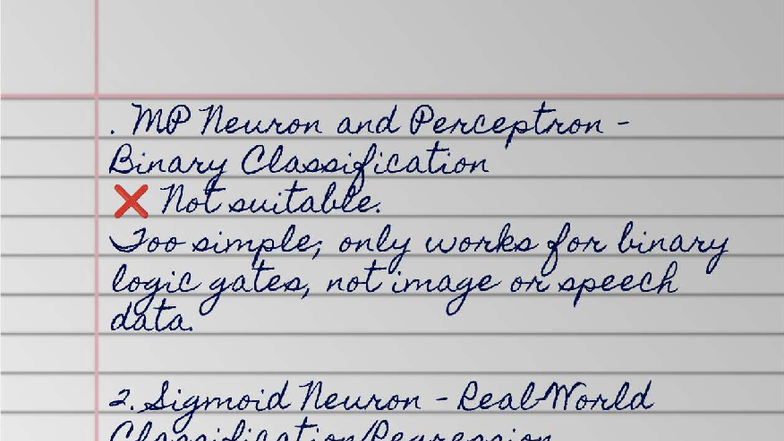 . MP Neuron and Perceptron -
Binary Classification
❌ Not suitable.
Too simple; only works for binary
logic gates, not image or speech
data.
2. Sigmoid Neuron - Real-World
Classification/Regression